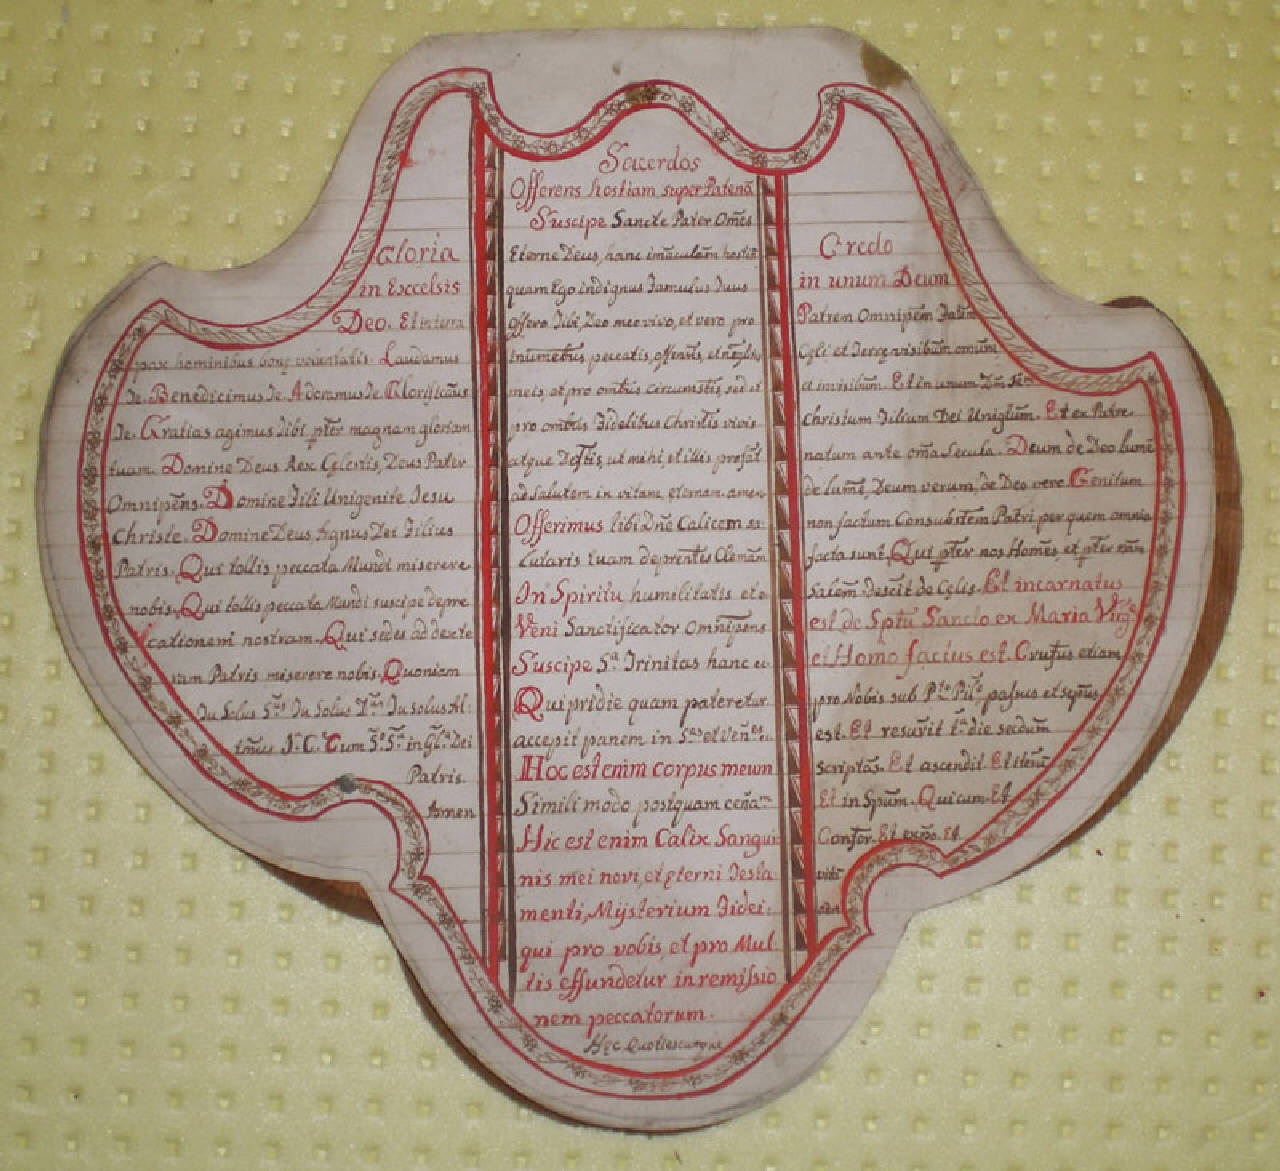 Gloria
in Excelsis
Deo. Et in terra
pax hominibus bonę voluntatis. Laudamus
Te. Benedicimus Te. Adoramus Te. Glorificãus
Te. Gratias agimus Tibi pter magnam gloriam
tuam. Domine Deus Rex Cęlestis, Deus Pater
Omnipẽns. Domine Fili Unigenite Iesu
Christe. Domine Deus, Agnus Dei Filius
Patris. Qui tollis peccata Mundi miserere
nobis. Qui tollis peccata Mundi suscipe depre
cationem nostram. Qui sedes ad dexte
ram Patris miserere nobis. Quoniam
Tu Solus Stus Tu Solus Dnus Tu solus Al:
tmus J. C. Cum So. St. in Gla. Dei
Patris.
Amen
Sacerdos
Offerens hostiam super Patenã
Suscipe Sancte Pater Omẽs
Eterne Deus, hanc imãculatm hostiã
quam Ego indignus Famulus Tuus
offero Tibi, Deo meo vivo, et vero pro
inumeribus peccatis, offensis, et neglis
meis, et pro omibus circumstis, sed et
pro omibus Fidelibus Christis vivis
atque Dẽftis, ut mihi, et illis profãt
ad Salutem in vitam ęternam. amen
Offerimus tibi Dñe Calicem sa:
lutaris tuam deprentes Clemãm
In Spiritu humilitatis etc
Veni Sanctificator Omnipens
Suscipe Sa. Trinitas hanc
Qui pridie quam pateretur
accepit panem in Stas et Venes
Hoc est enim corpus meum
Simili modo postquam cenatm
Hic est enim Calix Sangui
nis mei novi, et ęterni Testa
menti, Mÿsterium Fidei:
qui pro vobis, et pro Mul
tis effundetur in remissio
nem peccatorum.
Hęc Quotiescumque
Credo
in unum Deum
Patrem Omnipem Fatm
Cęli et Terrę visibilm omium
et invisibm. Et in unum Dm Jm
Christum Filium Dei Unigtum. Et ex Patre
natum ante omã Secula. Deum de Deo lumẽ
de lumẽ, Deum verum, de Deo vero. Genitum
non factum Consubstem Patri per quem omnia
facta sunt. Qui pter nos Homẽs, et pter nãm
Salem Descit de Cęlis. Et incarnatus
est de Sptu Sancto ex Maria Virge
et Homo factus est. Crufus etiam
pro Nobis sub Pto Pilo passus et sepus
est. Et resuvit ta. die secdum
scriptas. Et ascendit. Et iterũ
Et in Spum. Qui cum. Et
Confor. Et expo. Et